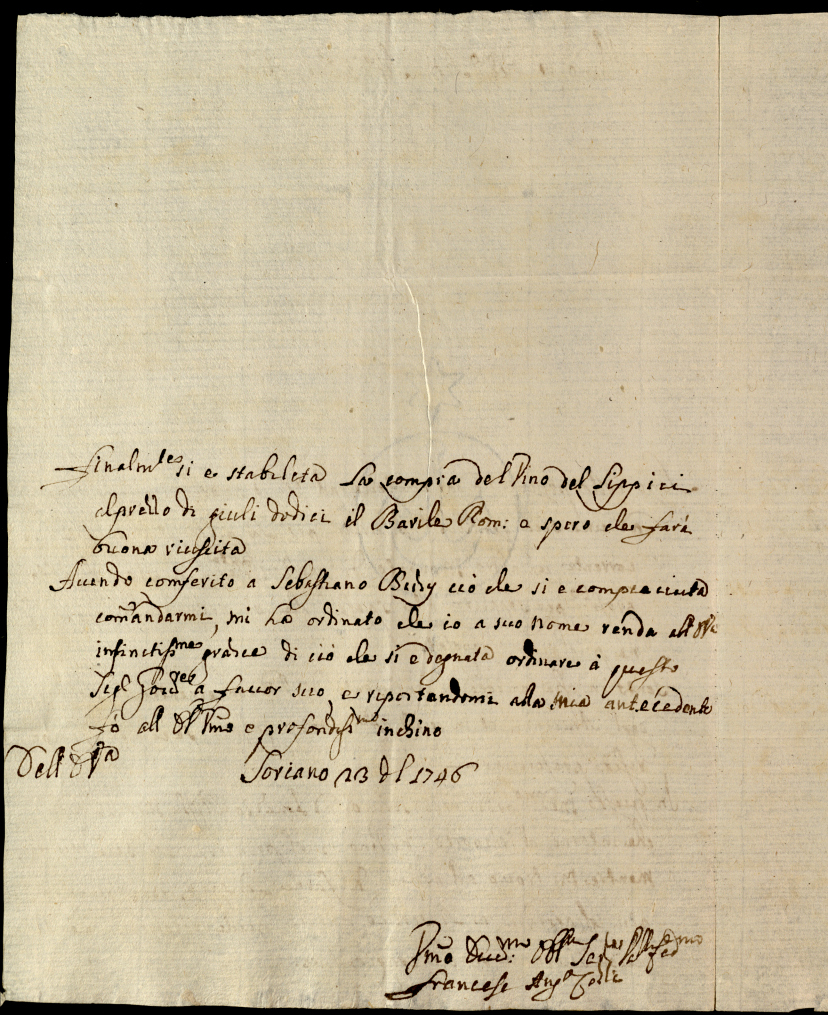 Finalm.te si e stabilita la compra del Vino del Lippici
al prezzo di giuli dodici il Barile Rom: e spero che farà
buona riuscita
Avendo comferito a Sebastiano ciò che si e compiaciuta
comandarmi, mi ha ordinato che io a suo nome renda all
infinitiss.me grazie di ciò che si e degnata ordinare à questo
à favor suo, e riportandomi alla mia antecedente
fò all e profondiss.mo inchino
Dell
Soriano 23 1746
Francesc Ang.o